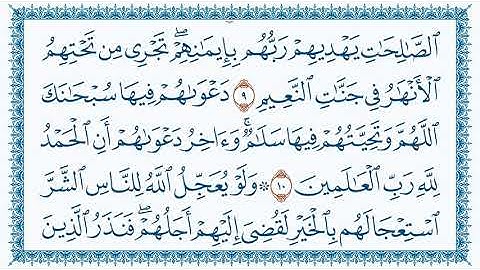 ٱلصَّـٰلِحَـٰتِ يَهْدِيهِمْ رَبُّهُم بِإِيمَـٰنِهِمْ ۖ تَجْرِى مِن تَحْتِهِمُ
ٱلْأَنْهَـٰرُ فِى جَنَّـٰتِ ٱلنَّعِيمِ ٩ دَعْوَىٰهُمْ فِيهَا سُبْحَـٰنَكَ
ٱللَّهُمَّ وَتَحِيَّتُهُمْ فِيهَا سَلَـٰمٌ ۚ وَءَاخِرُ دَعْوَىٰهُمْ أَنِ ٱلْحَمْدُ
لِلَّهِ رَبِّ ٱلْعَـٰلَمِينَ ١٠ ۞ وَلَوْ يُعَجِّلُ ٱللَّهُ لِلنَّاسِ ٱلشَّرَّ
ٱسْتِعْجَالَهُم بِٱلْخَيْرِ لَقُضِىَ إِلَيْهِمْ أَجَلُهُمْ ۖ فَنَذَرُ ٱلَّذِينَ